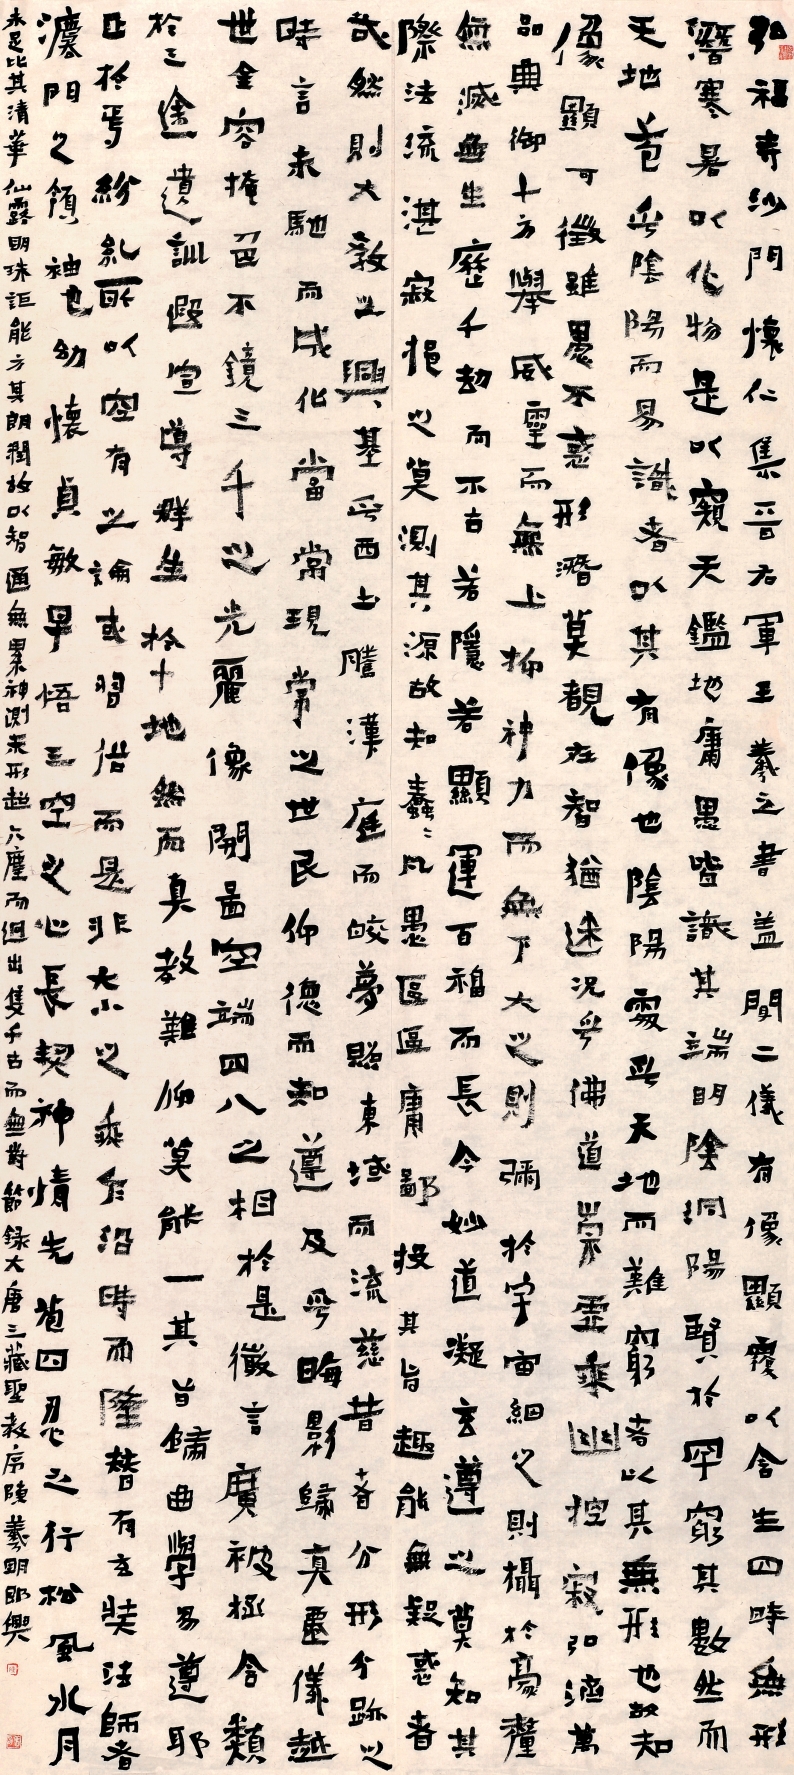 弘福寺沙門懷仁集晉右軍王羲之書蓋聞二儀有像顯覆以含生四時無形
潛寒暑以化物是以窺天鑑地庸愚皆識其端明陰洞陽賢哲罕窮其數然而
天地苞乎陰陽而易識者以其有像也陰陽處乎天地而難窮者以其無形也故知
像顯可徵雖愚不惑形潛莫覩在智猶迷況乎佛道崇虛乘幽控寂弘濟萬
品典御十方舉威靈而無上抑神力而無下大之則彌於宇宙細之則攝於豪釐
無滅無生歷千劫而不古若隱若顯運百福而長今妙道凝玄遵之莫知其
際法流湛寂挹之莫測其源故知蠢〻凡愚區區庸鄙投其旨趣能無疑惑者
哉然則大教之興基乎西土騰漢庭而皎夢照東域而流慈昔者分形分跡之
時言未馳而成化當常現常之世民仰德而知遵及乎晦影歸真遷儀越
世金容掩色不鏡三千之光麗像開圖空端四八之相於是微言廣被拯含類
於三途遺訓遐宣導群生於十地然而真教難仰莫能一其旨歸曲學易遵邪
正於焉紛糺所以空有之論或習俗而是非大小之乘乍沿時而隆替有玄奘法師者
法門之領袖也幼懷貞敏早悟三空之心長契神情先苞四忍之行松風水月
未足比其清華仙露明珠詎能方其朗潤故以智通無累神測未形超六塵而迥出隻千古而無對節錄大唐三藏聖教序陳羲明即興